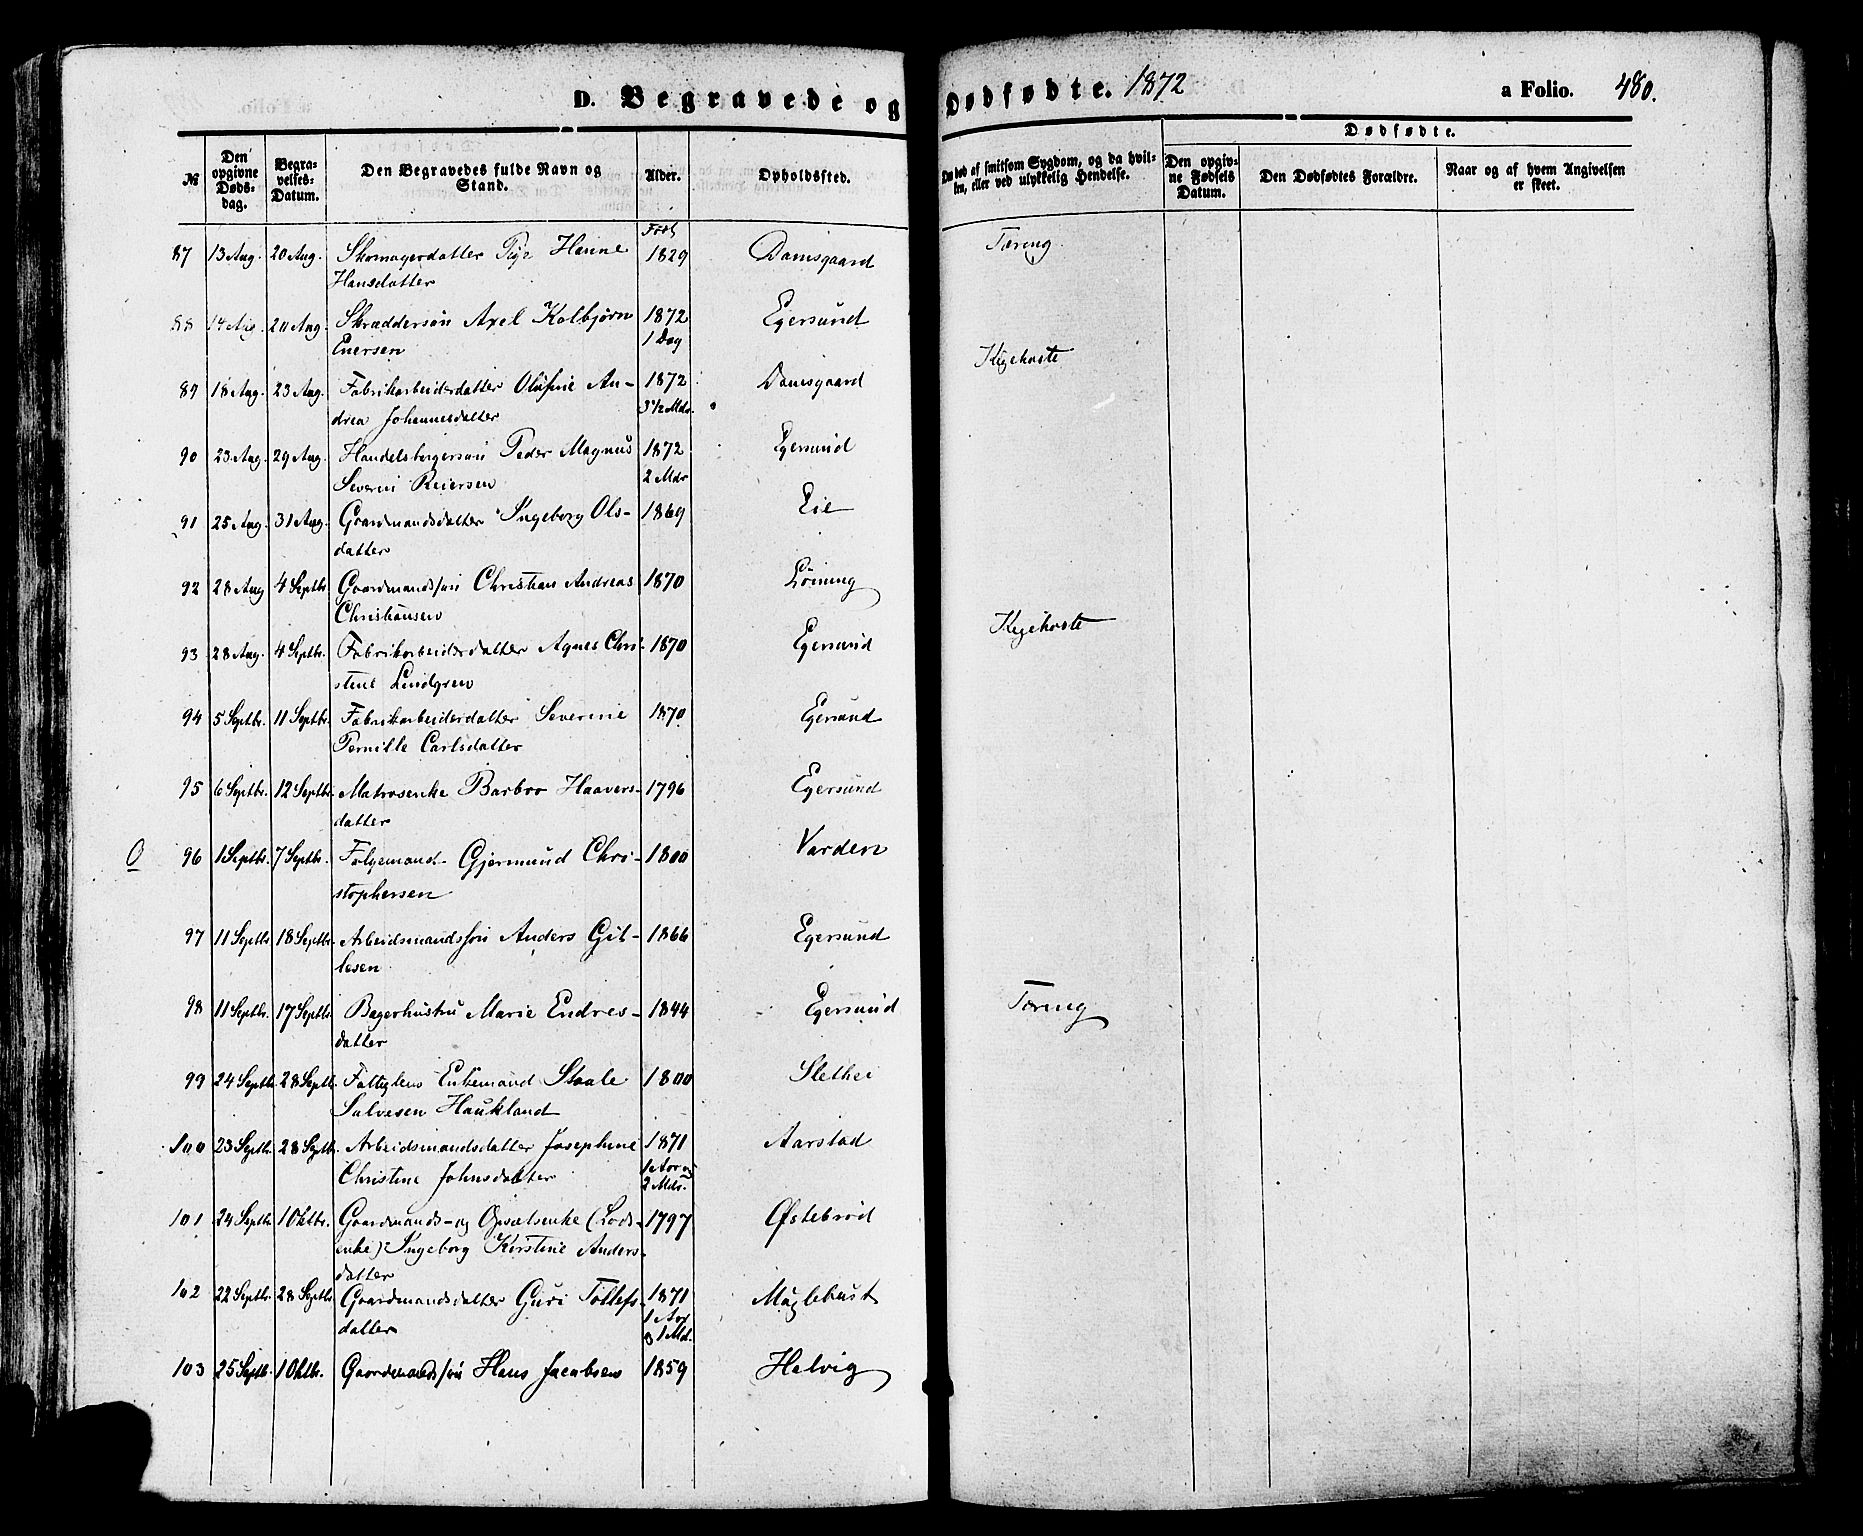 D. Begravede og Dødfødte. 1872 a Folio. 480.
Dødfødte.
№
Den opgivne Dødsdag.
Begravelses-Datum.
Den Begravedes fulde Navn og Stand.
Alder.
Opholdssted.
død af smitsom Sygdom, og da hvilken, eller ved ulykkelig Hendelse.
Den opgivne Fødsels Datum.
Den Dødfødtes Forældre.
Naar og af hvem Angivelsen er skeet.
Født
87 13 Aug. 20 Aug. Skomagerdatter Pige Hanne 1829 Damsgaard Tæring
Hansdatter
88 14 Aug. 20 Aug. Skræddersøn Axel Kolbjørn 1872 Egersund
Enersen 1 Dag
89 18 Aug. 23 Aug. Fabrikarbeiderdatter Olufine An- 1872 Damsgaard Kigehoste
drea Johannesdatter 3½ Mdr.
90 23 Aug. 29 Aug. Handelsborgersøn Peder Magnus 1872 Egersund
Severin Reiersen 2 Mdr
91 25 Aug. 31 Aug. Gaardmandsdatter Ingeborg Ols- 1869 Eie
datter
92 28 Aug 4 Septbr. Gaardmandssøn Christian Andreas 1870 Löining
Christiansen
93 28 Aug. 4 Septbr. Fabrikarbeiderdatter Agnes Chri- 1870 Egersund Kigehoste
stene Lindgren
94 5 Septbr. 11 Septbr. Fabrikarbeiderdatter Severine 1870 Egersund
Pernille Carlsdatter
95 6 Septbr. 12 Septbr. Matrosenke Barbro Haavers- 1796 Egersund
datter
O 96 1 Septbr. 7 Septbr. Følgemand Gjermund Chri- 1800 Varden
stophersen
97 11 Septbr. 18 Septbr. Arbeidsmandssøn Anders Git- 1866 Egersund
lesen
98 11 Septbr. 17 Septbr. Bagerhustru Marie Endres- 1844 Egersund Tæring
datter
99 24 Septbr. 28 Septbr. Fattiglem Enkemand Staale 1800 Slethei
Salvesen Haukland
100 23 Septbr. 28 Septbr. Arbeidsmandsdatter Josephine 1871 Aarstad
Christine Johnsdatter 1 Aar og
2 Mdr.
101 24 Septbr. 1 Oktbr. Gaardmands- og Opsætsenke (Lods- 1797 Østebrød
enke) Ingeborg Kirstine Anders-
datter
102 22 Septbr. 28 Septbr. Gaardmandsdatter Guri Tollefs- 1871 Myglebust
datter 1 Aar
o 1 Md.
103 25 Septb. 1 Oktbr. Gaardmandssøn Hans Jacobsen 1859 Helvig